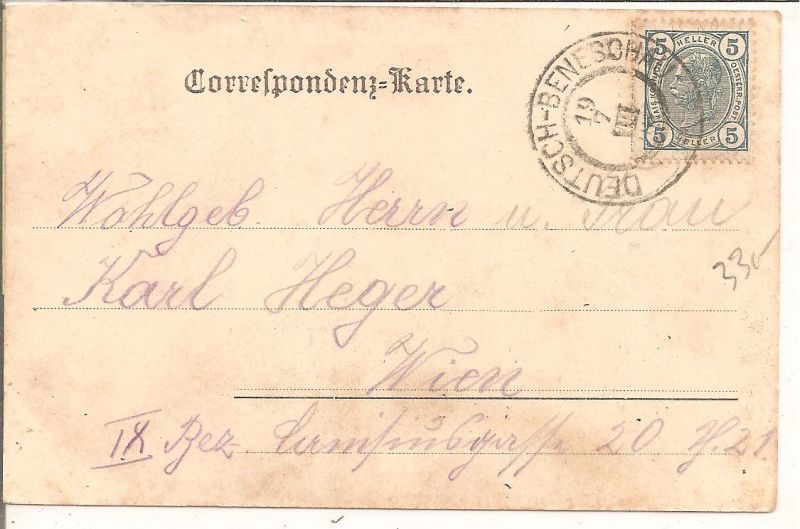 5 HELLER 5
5 HELLER 5
OESTERR. POST
DEUTSCH-BENESCHAU
19
7
VII
Correspondenz-Karte.
Wohlgeb. Herrn u. Frau
Karl Heger
330
Wien
IX Bez. Canisiusgasse 20 II. 21